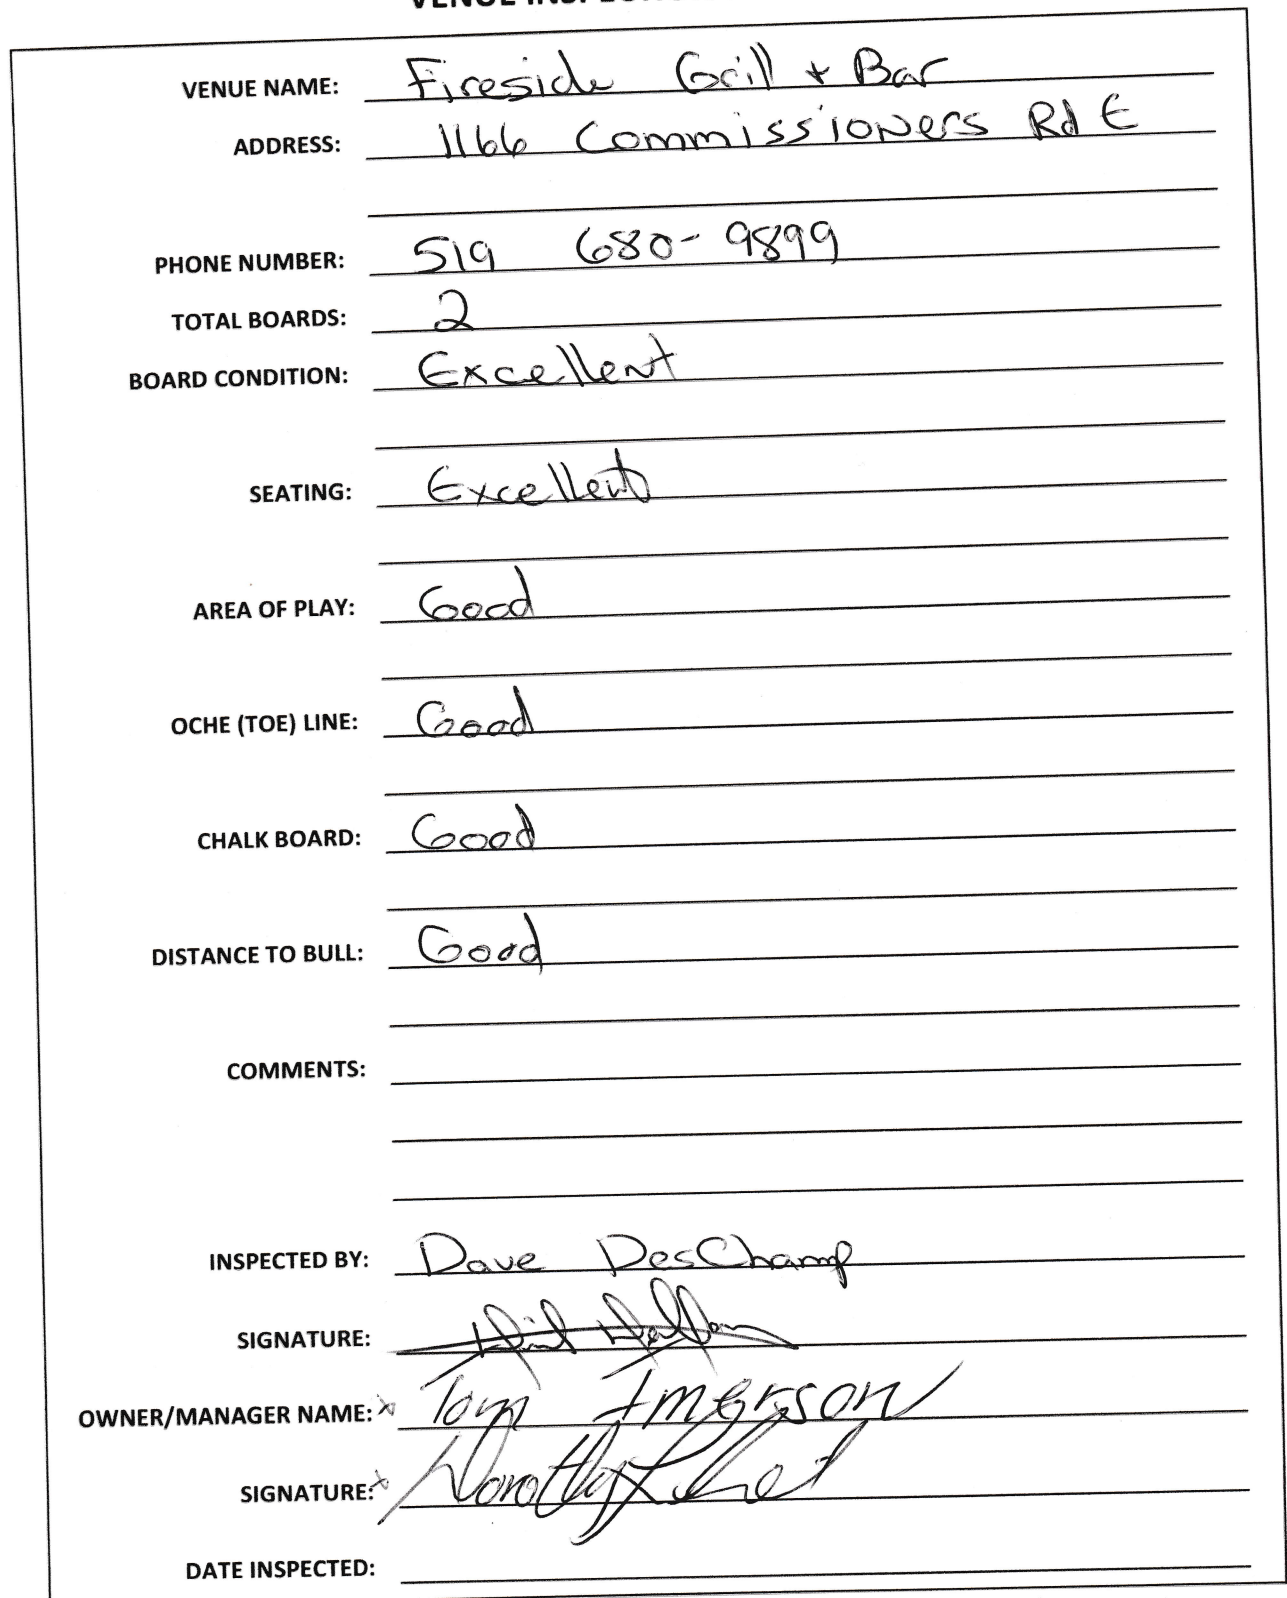 VENUE NAME: Fireside Grill + Bar
ADDRESS: 1166 Commissioners Rd E
PHONE NUMBER: 519 680-9899
TOTAL BOARDS: 2
BOARD CONDITION: Excellent
SEATING: Excellent
AREA OF PLAY: Good
OCHE (TOE) LINE: Good
CHALK BOARD: Good
DISTANCE TO BULL: Good
COMMENTS:
INSPECTED BY: Dave DesChamp
SIGNATURE:
OWNER/MANAGER NAME: x Tom Imerson
SIGNATURE: x Dorothy
DATE INSPECTED: